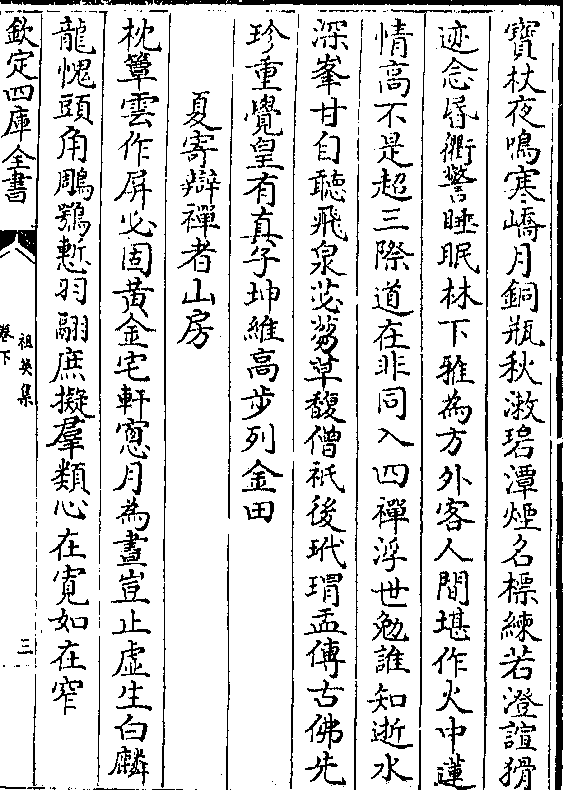 寶杖夜鳴寒嶠月銅瓶秋漱碧潭煙名標練若澄諠猾
迹念昏衢警睡眠林下雅為方外客人間堪作火中蓮
情高不是超三際道在非同入四禪浮世勉誰知逝水
深峯甘自聽飛泉苾蒭草馥僧祇後玳瑁盂傳古佛先
珍重覺皇有真子坤維高步列金田
夏寄辯禪者山房
枕簟雲作屏必固黃金宅軒窻月為晝豈止虛生白麟
龍愧頭角鵰鶚慙羽翮庶擬羣類心在寛如在窄
欽定四庫全書
祖英集
卷下
三